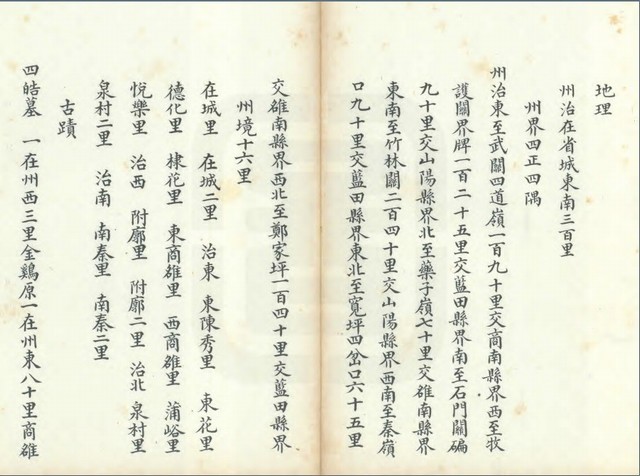 地理
州治在省城東南三百里
州界四正四隅
州治東至武關四道嶺一百九十里交商南縣界西至牧
護關界牌一百二十五里交藍田縣界南至石門關碥
九十里交山陽縣界北至藥子嶺七十里交雒南縣界
東南至竹林關二百四十里交山陽縣界西南至秦嶺
口九十里交藍田縣界東北至寬坪四岔口六十五里
交雒南縣界西北至鄭家坪一百四十里交藍田縣界
州境十六里
在城里 在城二里 治東 東陳秀里 東花里
德化里 棣花里 東商雒里 西商雒里 蒲峪里
悅樂里 治西 附廓里 附廓二里 治北 泉村里
泉村二里 治南 南秦里 南秦二里
古蹟
四皓墓 一在州西三里金鷄原一在州東八十里商雒